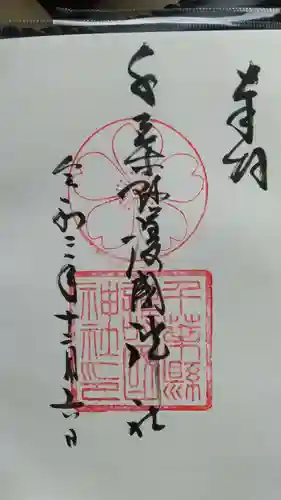 奉拝
千葉縣護國神社
令和三年十二月十六日
千葉縣
護國
神社之印